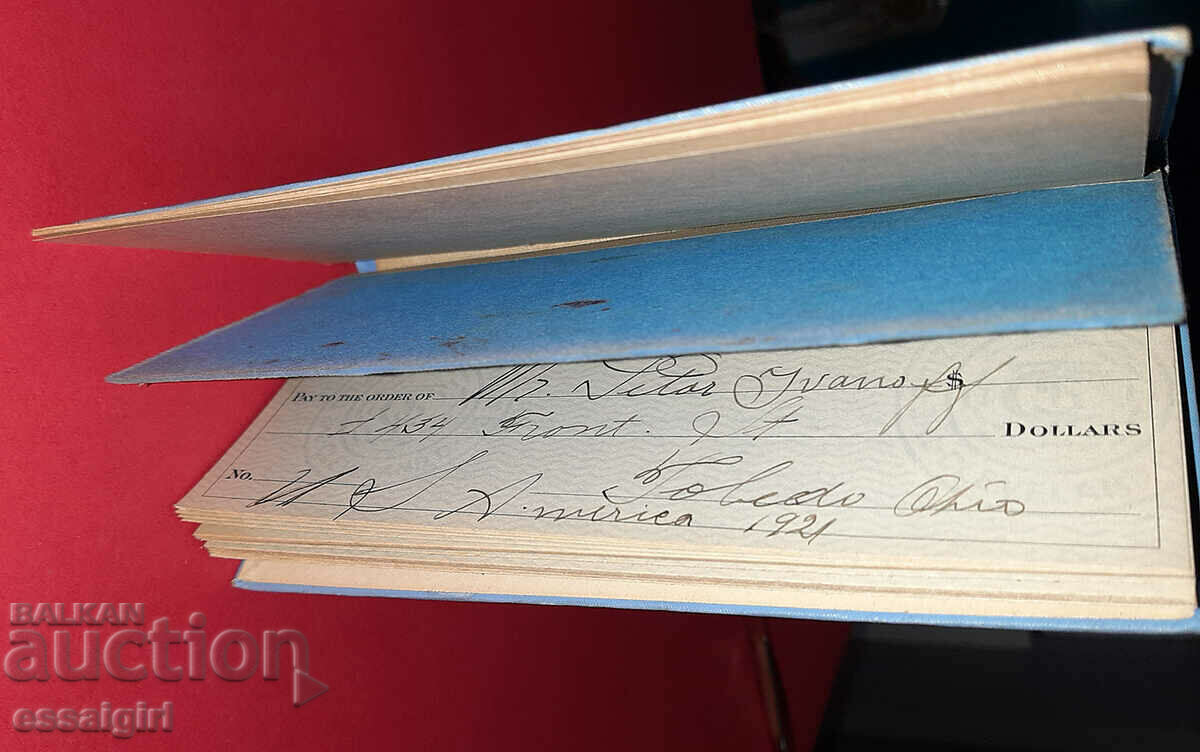 PAY TO THE ORDER OF Mr. Petar Ivanoff $
1434 Front. St DOLLARS
No. Toledo Ohio
U S America 1921
BALKAN
auction
essaigirl